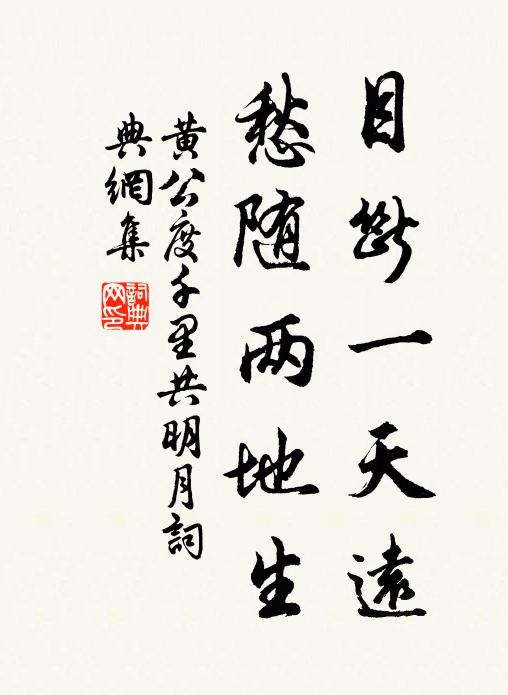 目断一天遠
愁随两地生
黄公度千里共明月詞
典網集
詞典
网印